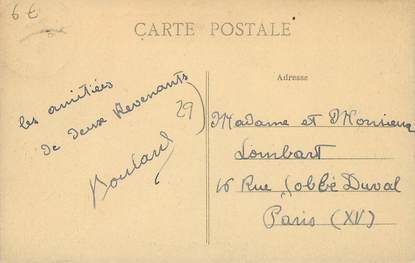 6€
CARTE POSTALE
Adresse
les amitiés
de deux Revenants
29
Madame et Monsieur
Lombart
16 Rue Cobbé Duval
Paris (XV)